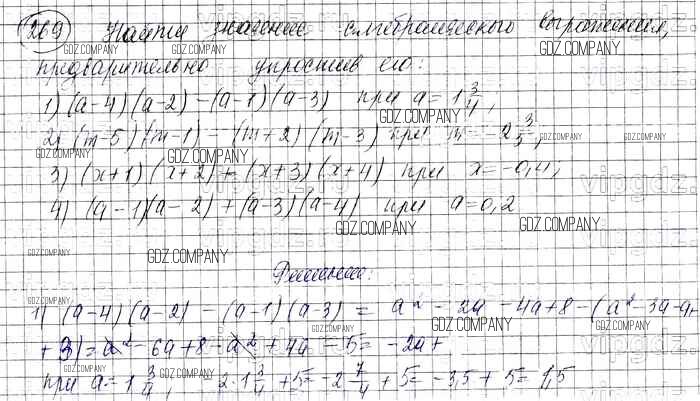 269 Найти значение алгебраического выражения,
предварительно упростив его:
1) (a-4)(a-2) - (a-1)(a-3) при a = 1 3/4;
2) (m-5)(m-1) - (m+2)(m-3) при m = -2 3/5;
3) (x+1)(x+2) + (x+3)(x+4) при x = -0,4;
4) (a-1)(a-2) + (a-3)(a-4) при a=0,2
Решение:
1) (a-4)(a-2) - (a-1)(a-3) = a² - 2a - 4a+8 - (a² - 3a-a+
+ 3) = a² - 6a+8 - a² + 4a - 5 = -2a+
при a = 1 3/4, -2·1 3/4 + 5 = -2 7/4 + 5 = -3,5 + 5 = 1,5
GDZ.COMPANY
vipgdz.ru